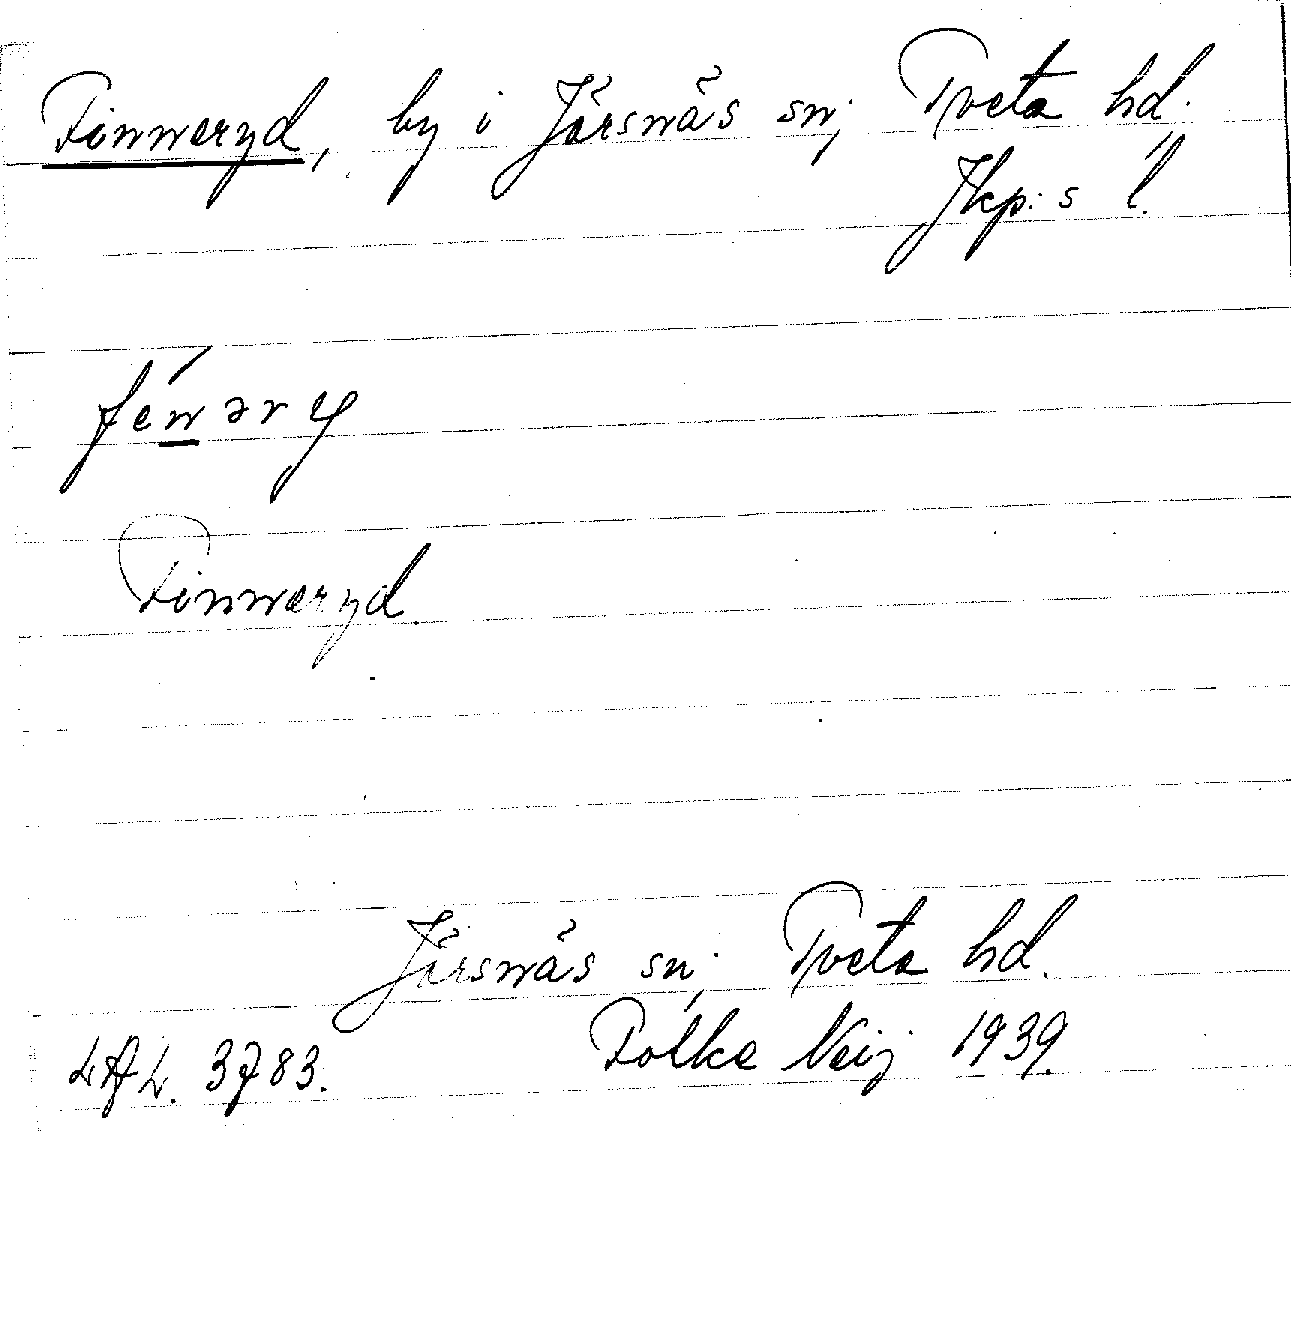 Finneryd, by i Järsnäs sn, Tveta hd,
Jkp:s l.
fe´n̲əry
Finneryd
Järsnäs sn, Tveta hd.
LAL. 3783. Folke Neij 1939.